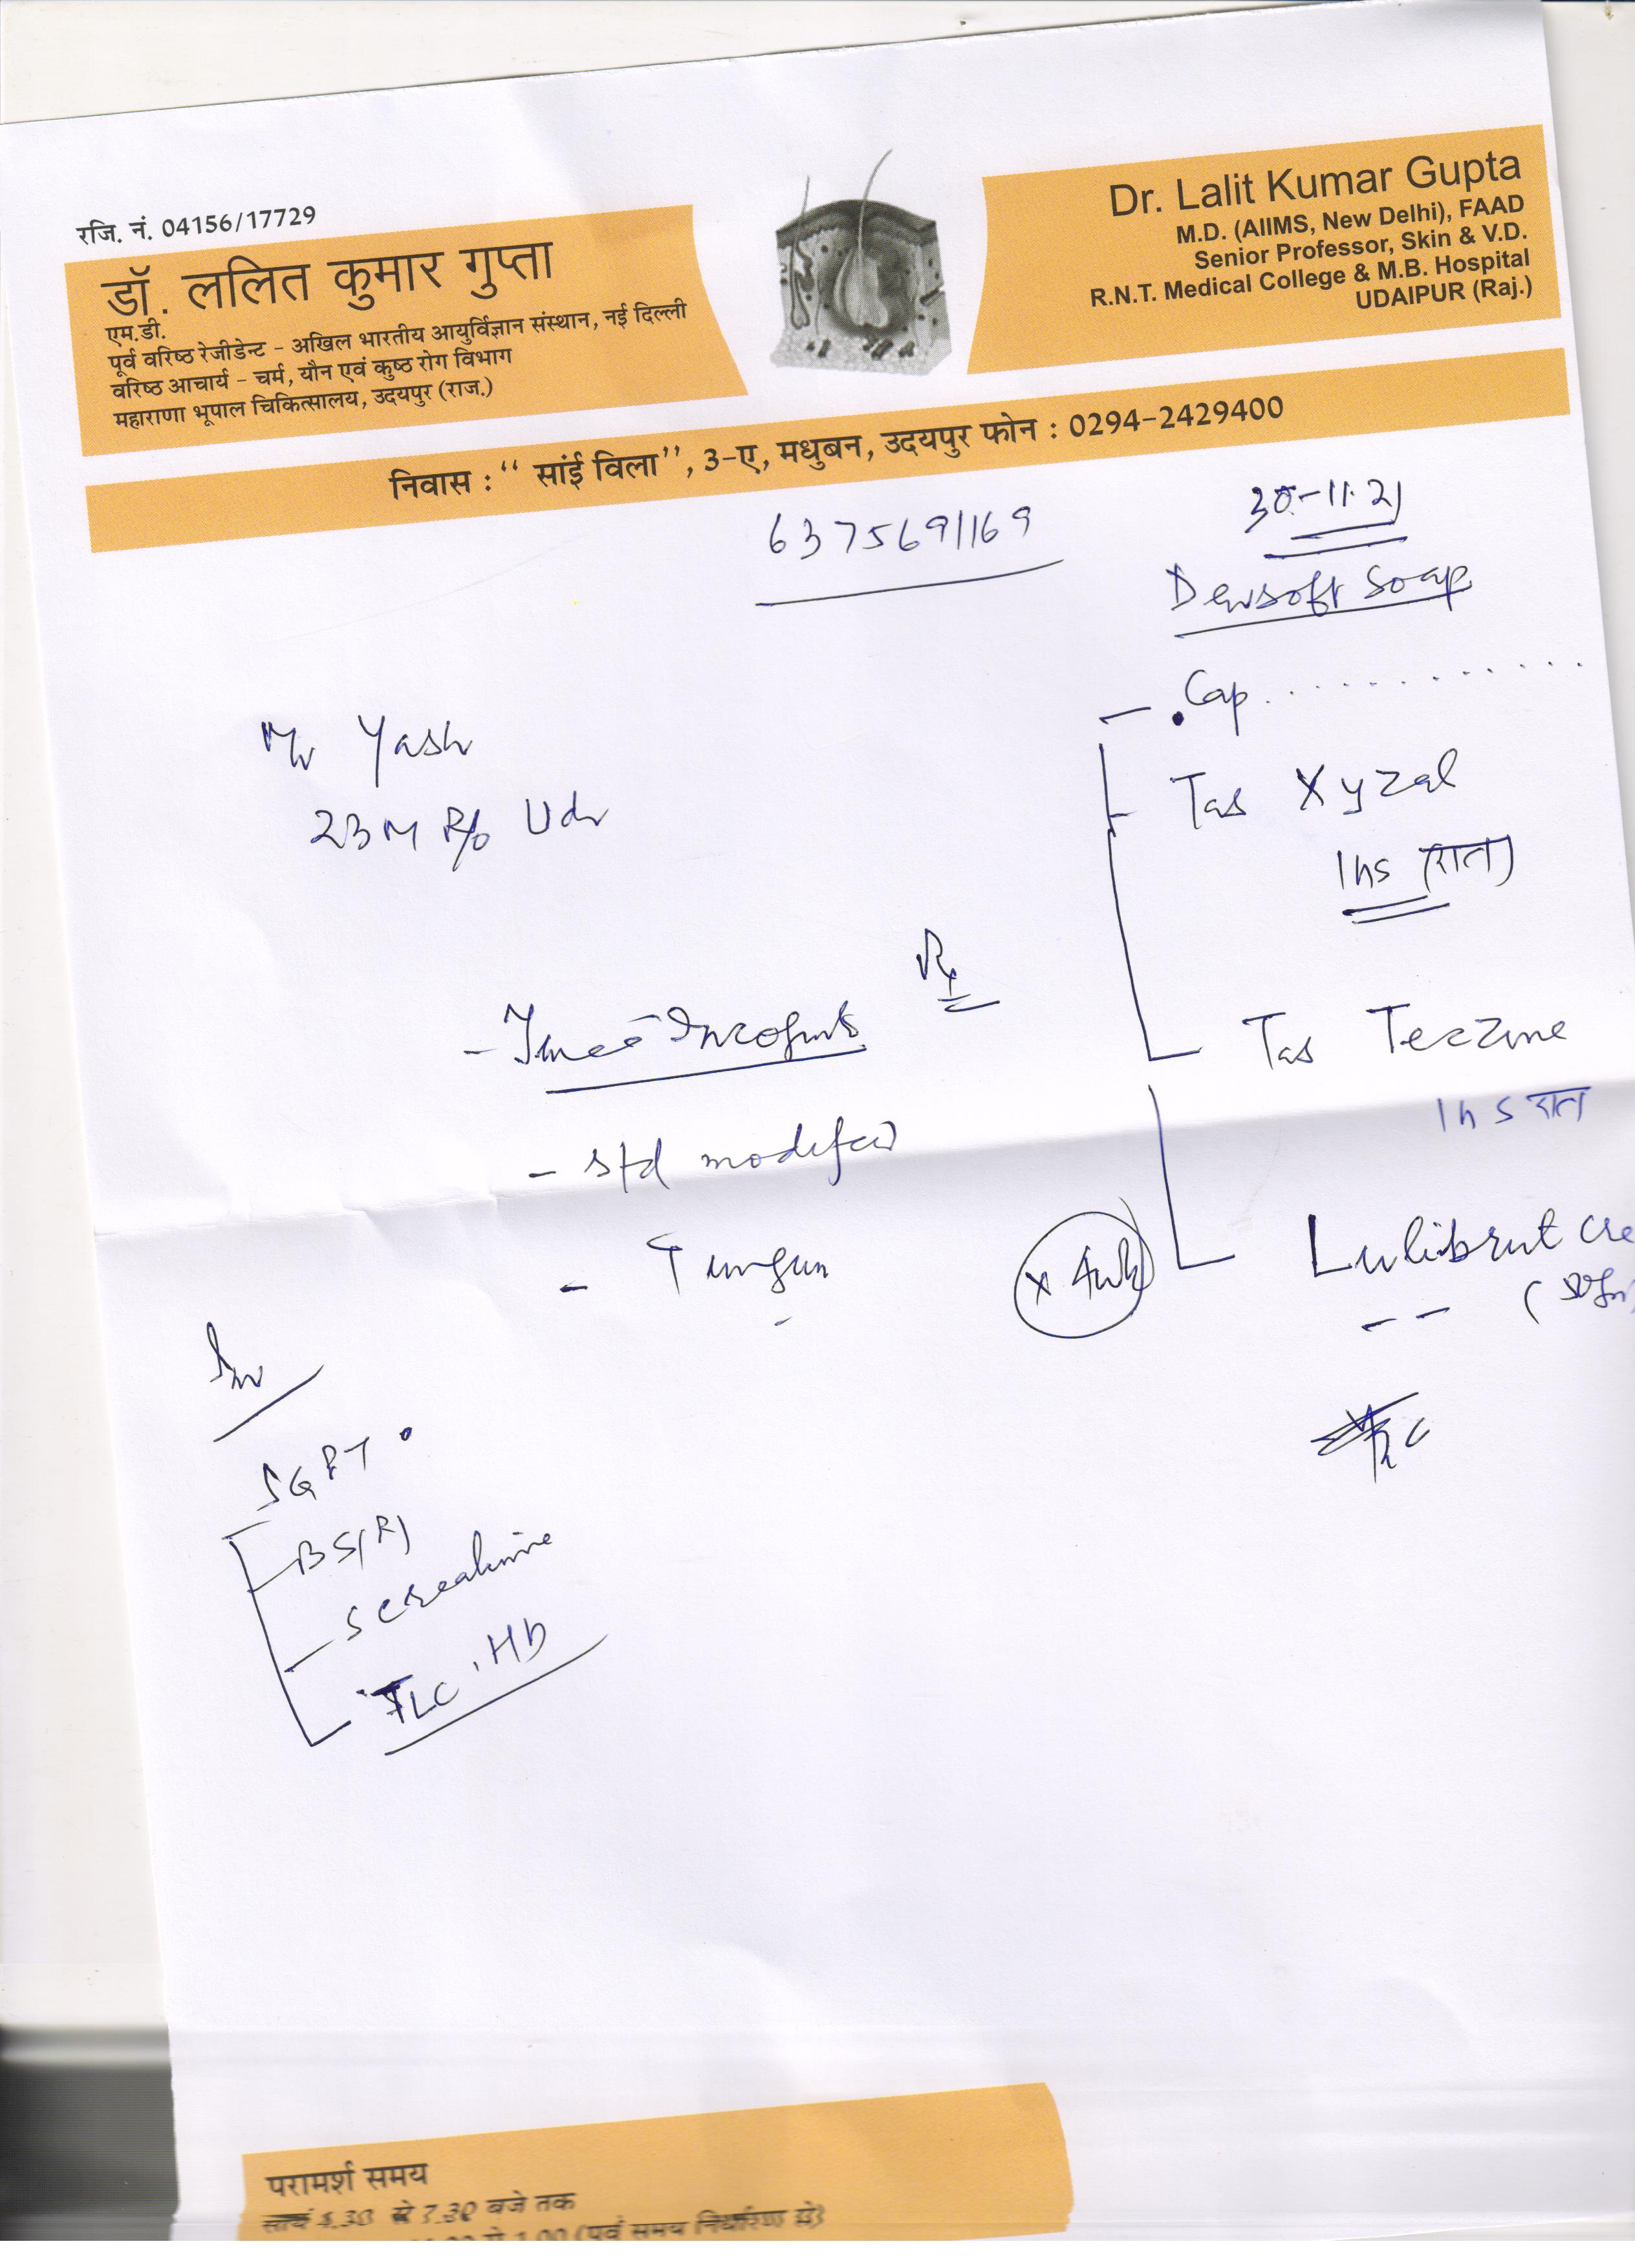 रजि. नं. 04156/17729
डॉ. ललित कुमार गुप्ता
एम.डी.
पूर्व वरिष्ठ रेजीडेन्ट - अखिल भारतीय आयुर्विज्ञान संस्थान, नई दिल्ली
वरिष्ठ आचार्य - चर्म, यौन एवं कुष्ठ रोग विभाग
महाराणा भूपाल चिकित्सालय, उदयपुर (राज.)
Dr. Lalit Kumar Gupta
M.D. (AIIMS, New Delhi), FAAD
Senior Professor, Skin & V.D.
R.N.T. Medical College & M.B. Hospital
UDAIPUR (Raj.)
निवास : “ सांई विला”, 3-ए, मधुबन, उदयपुर फोन : 0294-2429400
6375691169
30-11-21
Dewsoft Soap
- Cap ............
Mr Yash
23 M R/o Udr
- Tab Xyzal
1 hs (रात)
Rx
- Tinea Incognito
- Tab Teczine
1 hs रात
- Std modified
- T
x 4wk
- Lulibrut Cre
Inv
SGPT
BS(R)
S creatinine
TLC, Hb
परामर्श समय
सायं 4.30 से 7.30 बजे तक
1.00 (पूर्व समय निर्धारण से)